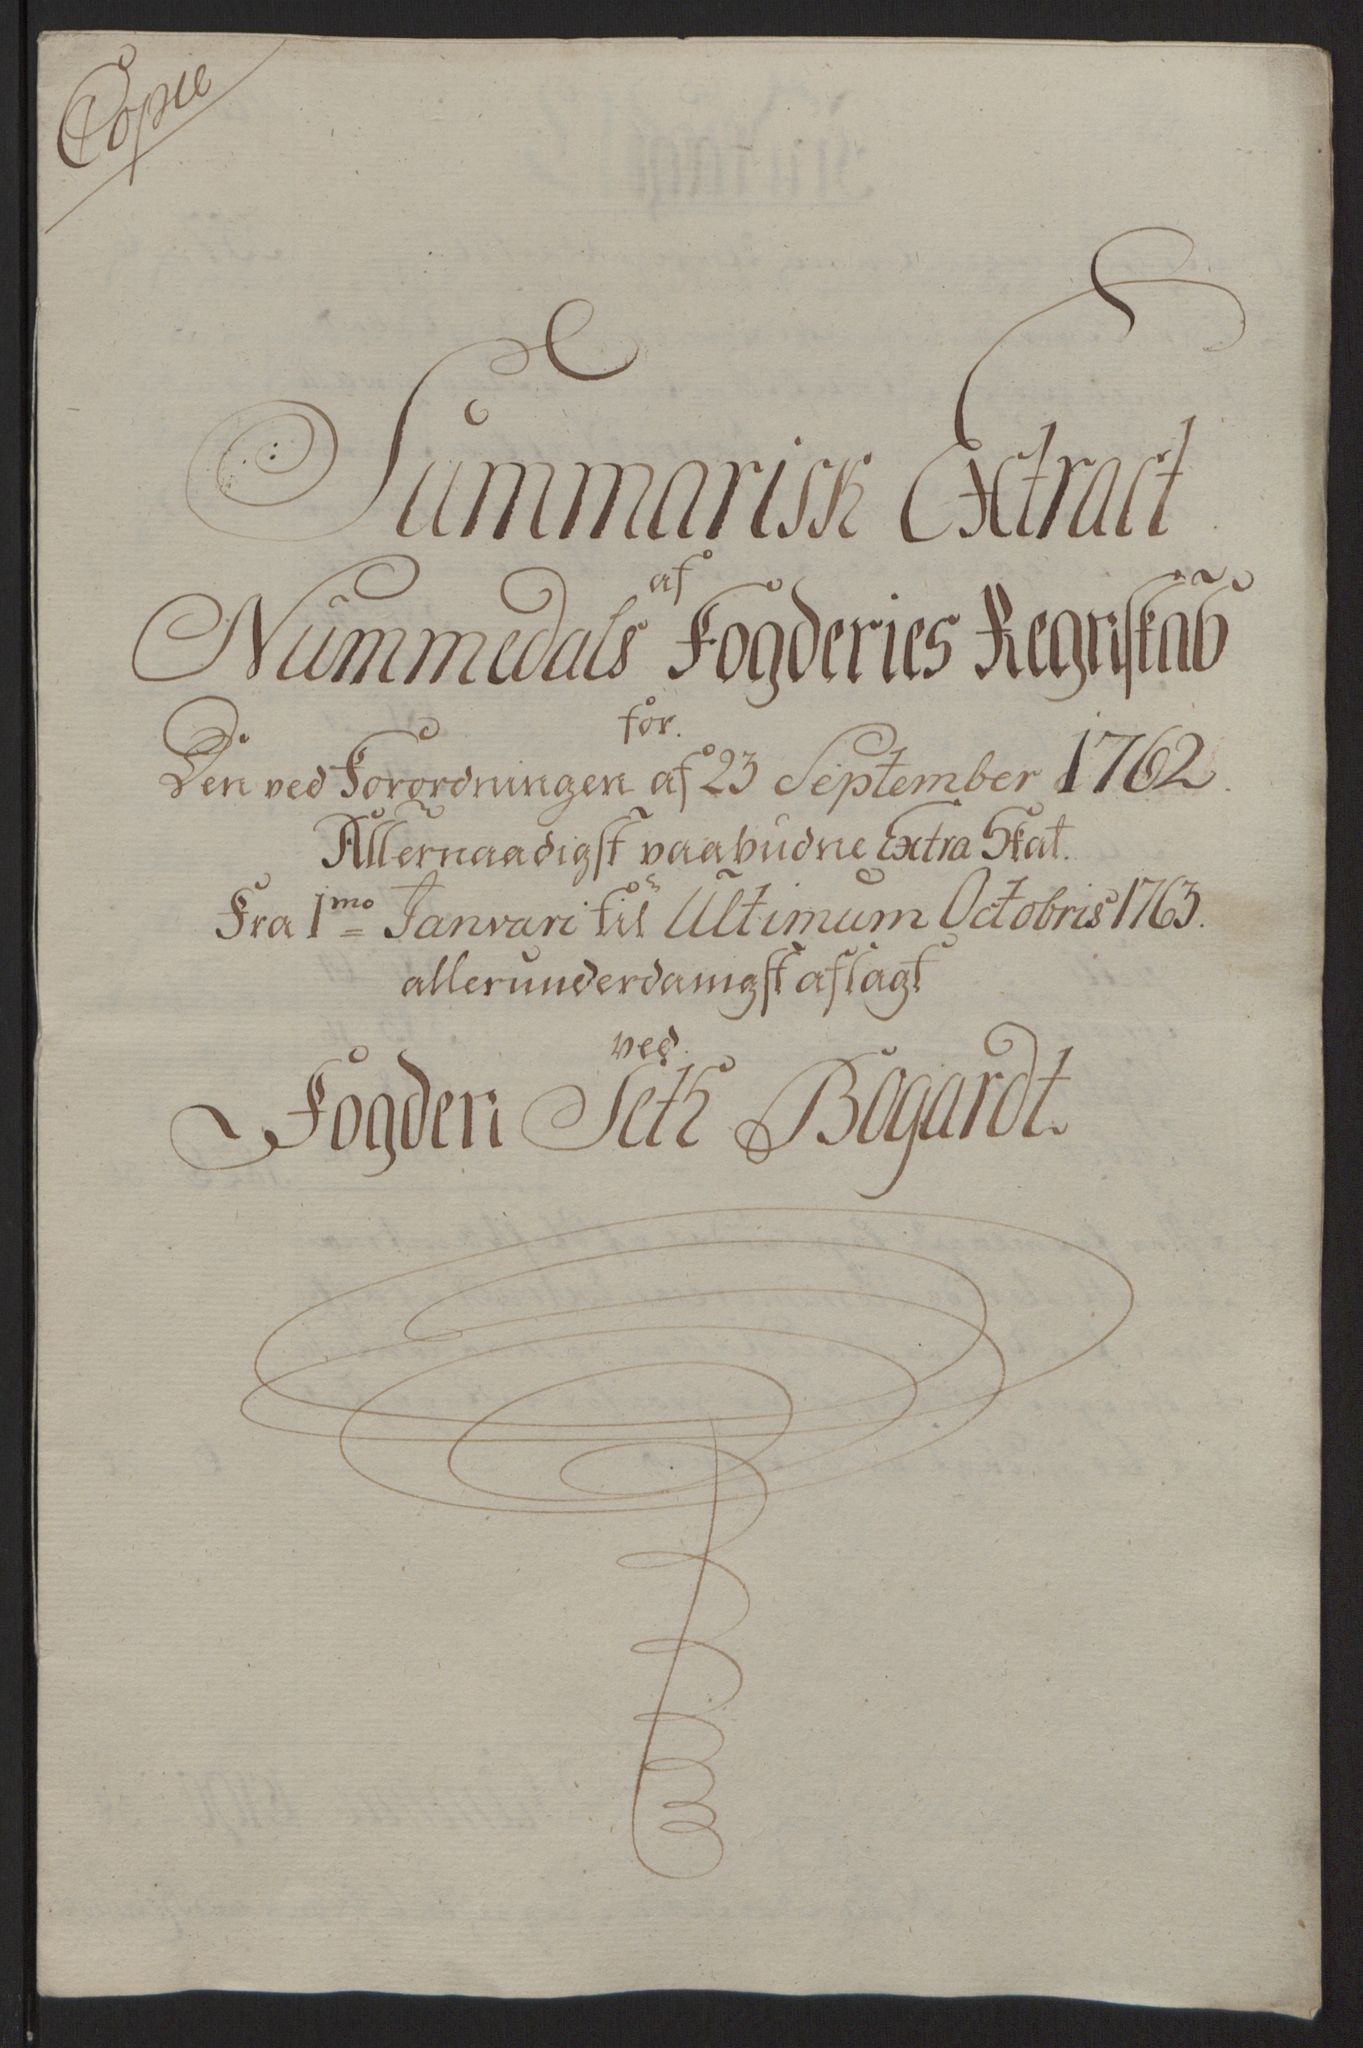 Copie
Summarisk Extract
af
Nummedals Fogderies Regnskab
for.
Den ved Forordningen af 23 September 1762.
Allernaadigst paabudne Extra Skat.
Fra 1mo Januari til Ultimum Octobris 1763.
allerunderdanigst aflagt
ved.
Fogden Seth Bogardt.